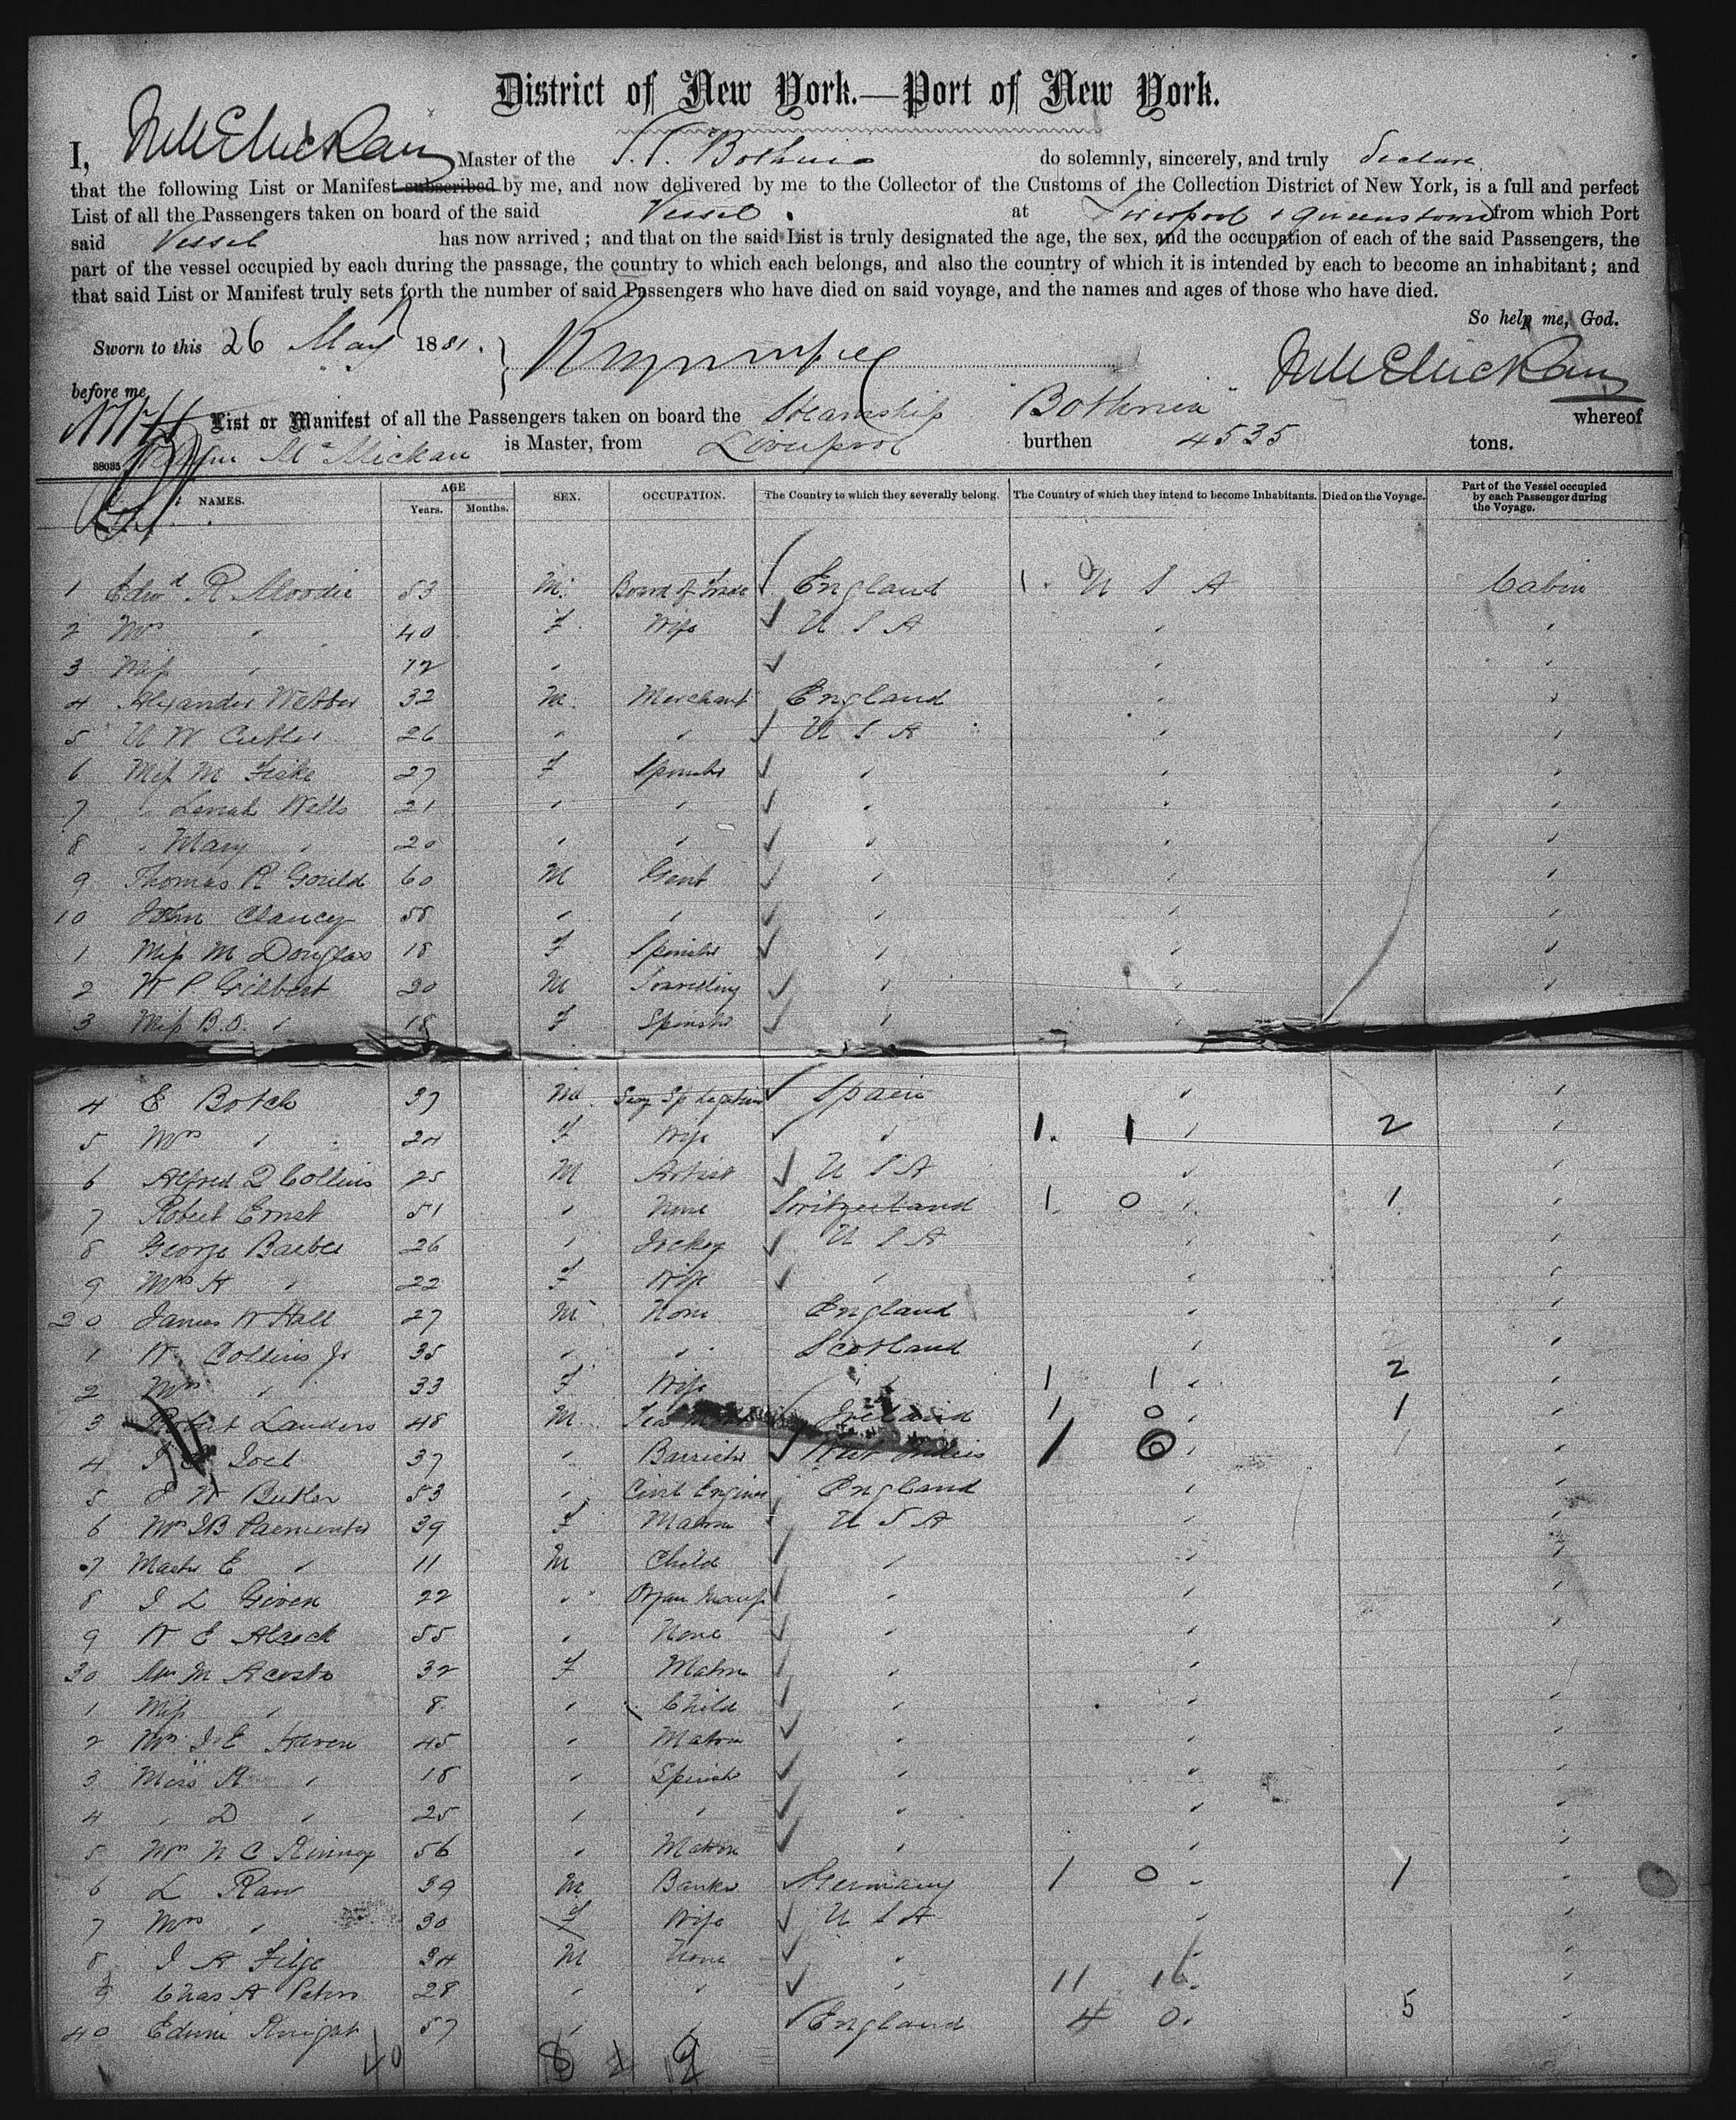 District of New York.—Port of New York.
I, McMickan Master of the S.S. Bothnia do solemnly, sincerely, and truly declare
that the following List or Manifest subscribed by me, and now delivered by me to the Collector of the Customs of the Collection District of New York, is a full and perfect
List of all the Passengers taken on board of the said Vessel at Liverpool & Queenstown from which Port
said Vessel has now arrived; and that on the said List is truly designated the age, the sex, and the occupation of each of the said Passengers, the
part of the vessel occupied by each during the passage, the country to which each belongs, and also the country of which it is intended by each to become an inhabitant; and
that said List or Manifest truly sets forth the number of said Passengers who have died on said voyage, and the names and ages of those who have died.
So help me, God.
Sworn to this 26 May 1881. McMickan
before me
List or Manifest of all the Passengers taken on board the Steamship "Bothnia" whereof
38035 McMickan is Master, from Liverpool burthen 4535 tons.
NAMES. AGE Years. Months. SEX. OCCUPATION. The Country to which they severally belong. The Country of which they intend to become Inhabitants. Died on the Voyage. Part of the Vessel occupied by each Passenger during the Voyage.
1 Edwd R Moodie 53 M. Board of Trade England 1. U S A Cabin
2 Mrs " 40 F. Wife U S A " "
3 Miss " 12 " " "
4 Alexander Webber 32 M. Merchant England " "
5 U W Cutler 26 " " U S A " "
6 Miss M Fiske 27 F Spinster " " "
7 " Wells 21 " " " " "
8 " Mary " 20 " " " " "
9 Thomas R Gould 60 M Gent " " "
10 John Clancy 58 " " " " "
1 Miss M Douglas 18 F Spinster " " "
2 W P Gilbert 20 M Travelling " " "
3 Miss B.O. " 18 F Spinster " " "
4 E Botch 37 M. Secy Sp Legation Spain " "
5 Mrs " 24 F Wife " 1. 1 " 2 "
6 Alfred Q Collins 25 M Artist U S A " "
7 Robert Ernst 51 " None Switzerland 1. 0 " 1 "
8 George Barbee 26 " Jockey U S A " "
9 Mrs H " 22 F Wife " " "
20 James W Hall 27 M None England " "
1 W. Collins Jr 35 " " Scotland " "
2 Mrs " 33 F Wife " 1 1 " 2 "
3 Robert Landers 48 M Ireland 1 0 " 1 "
4 Joel 37 " Barrister West Indies 1 0 " 1 "
5 J W Butler 53 " Civil Engineer England " "
6 Mrs J B Parmenter 39 F Matron U S A " "
7 Master E " 11 M Child " " "
8 J L Given 22 " Organ Manuf " " "
9 W E 55 " None " " "
30 Mrs M Acosta 32 F Matron " " "
1 Miss " 8 " Child " " "
2 Mrs J E Haven 45 " Matron " " "
3 Miss A " 18 " Spinster " " "
4 " D " 25 " " " " "
5 Mrs N C Kinney 56 " Matron " " "
6 L Rau 39 M Banker Germany 1 0 " 1 "
7 Mrs " 30 F Wife U S A " "
8 J A Filge 34 M None " " "
9 Chas A Peters 28 " " " 11 16. "
40 Edwin Knight 57 " " England 4 0. 5 "
40